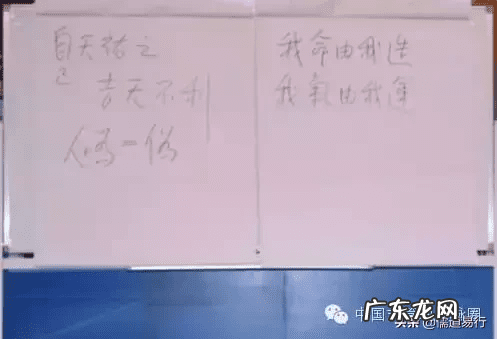 自天祐之
己
吉天不利
人为=伪
我命由我造
我氣由我運
中国
广东龙网
头条@儒道易行